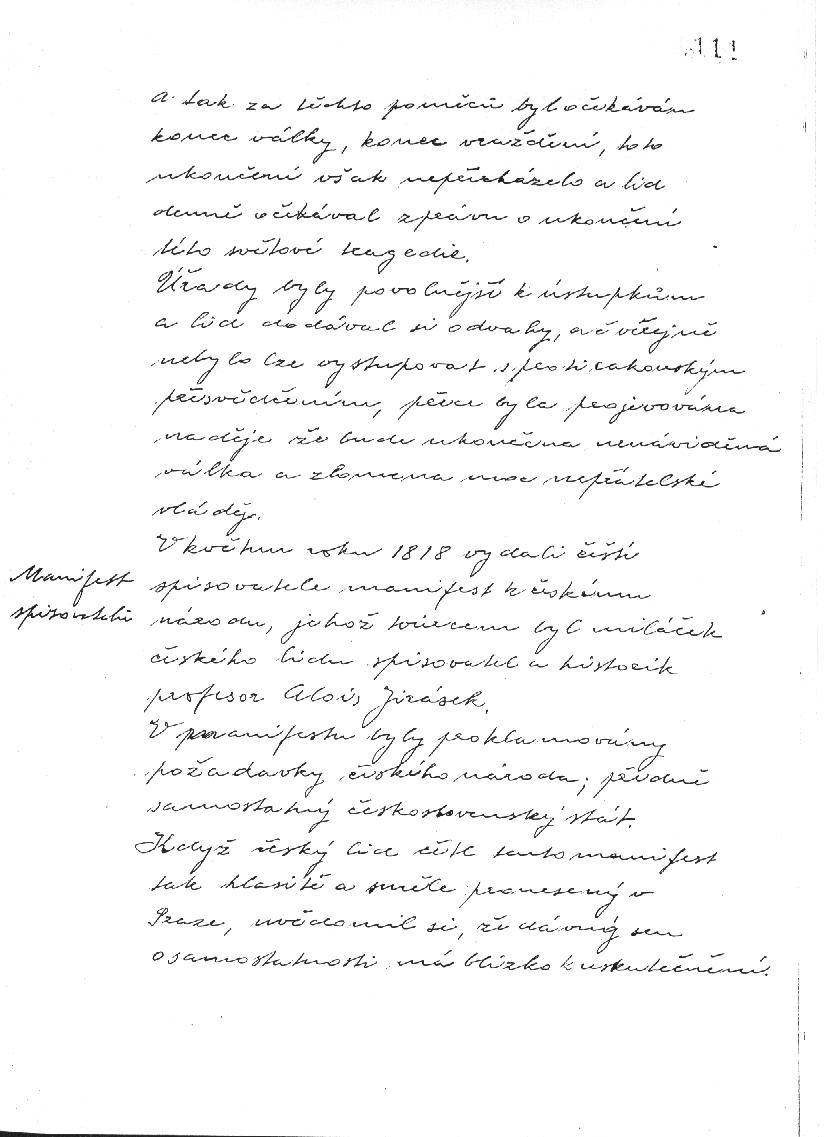 111
a tak za těchto poměrů byl očekáván
konec války, konec vraždění, toto
ukončení však nepřicházelo a lid
denně očekával zprávu o ukončení
této světové tragedie.
Úřady byly povolnější k ústupkům
a lid dodával si odvahy, ač veřejně
nebylo lze vystupovat s protirakouským
přesvědčením, přece byla projevována
naděje že bude ukončena nenáviděná
válka a zlomena moc nepřátelské
vlády.
V květnu roku 1818 vydali čeští
Manifest
spisovatelé manifest k českému
spisovatelů
národu, jehož tvůrcem byl miláček
českého lidu spisovatel a historik
profesor Alois Jirásek.
V manifestu byly proklamovány
požadavky českého národa;
samostatný československý stát.
Když český lid četl tento manifest
tak hlasitě a směle pronesený v
Praze, uvědomil si, že dávný sen
o samostatnosti má blízko k uskutečnění.